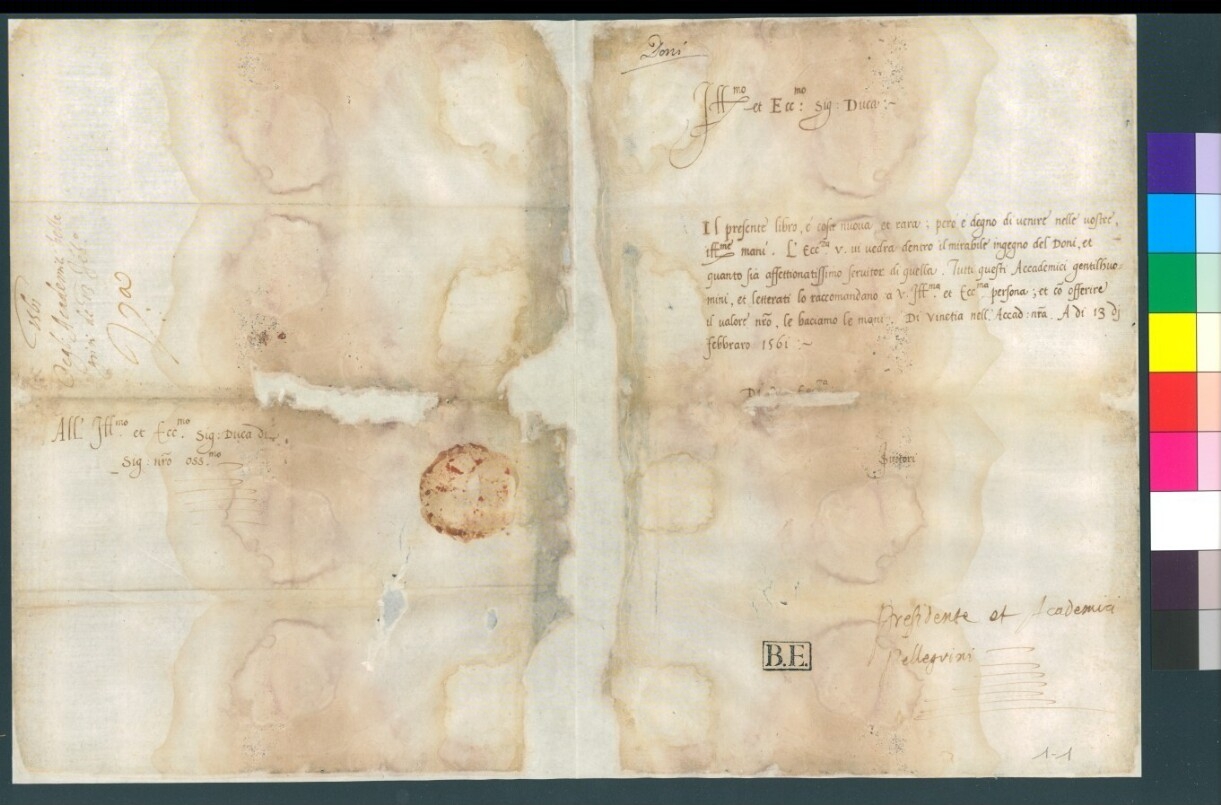 Doni
Ill^mo et Ecc^mo: Sig: Duca:~
Il presente libro, è cosa nuova et rara; però è degno di venire nelle vostre,
ill^me mani. L' Ecc^za v. vedra dentro il mirabile ingegno del Doni, et
quanto sia affettionatissimo servitor di quella. Tutti questi Accademici gentilhuo
mini, et letterati lo raccomandano a V. Ill^ma. et Ecc^ma persona; et cō offerire
il valore nr̄o, le baciamo le mani. Di Vinetia nell'Accad: nr̄a. A di 13 dj
febbraro 1561:~
Di
Presidente et Academici
Pellegrini
B.E.
1-1
1561
All' Ill^mo. et Ecc^mo. Sig: Duca di
Sig: nr̄o oss^mo.